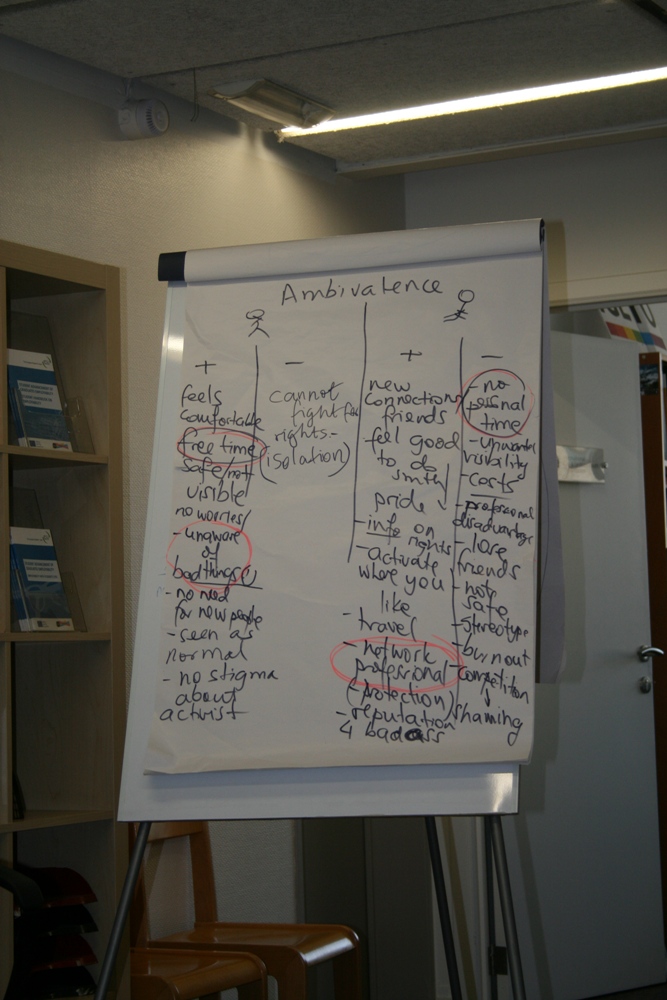 Ambivalence
+
feels
comfortable
free time
safe/not
visible
no worries/
- unaware
of
bad things(!)
- no need
for new people
- seen as
normal
- no stigma
about
activist
-
cannot
fight for
rights-
(isolation)
+
new
connections
friends
- feel good
to do
smth
pride
- info on
rights
- activate
where you
like
- travel
- network
professional
(protection)
- reputation
4 badass
-
- no
personal
time
- unwanted
visibility
- costs
- professional
disadvantage
- lose
friends
- not
safe
- stereotype
- burnout
competition
shaming